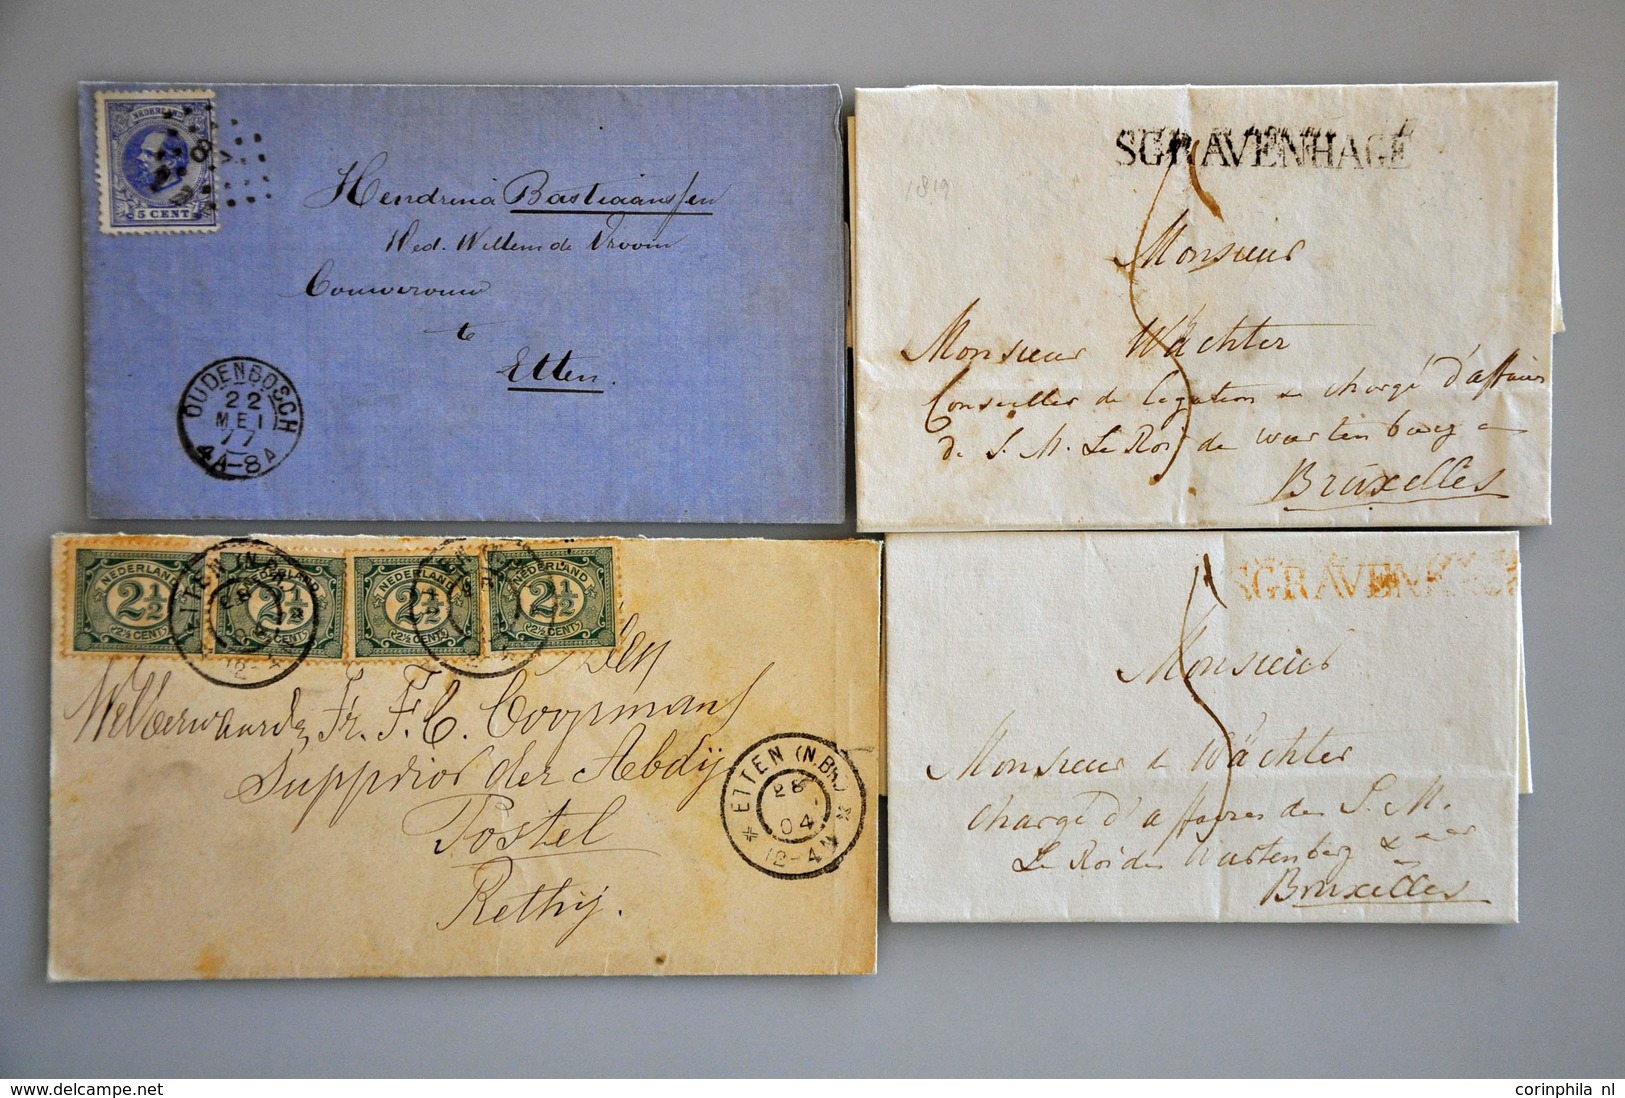 NEDERLAND
5 CENT
Hendrina Bastiaanssen
Wed. Willem de Vroom
te
Etten.
OUDENBOSCH
22
MEI
77
4A-8A
SGRAVENHAGE
1819
Monsieur
Monsieur Wächter
Conseiller de legation & chargé d'affaires
de S. M. Le Roi de Wurtenberg
Bruxelles
NEDERLAND
2½
2½ CENT
NEDERLAND
2½
2½ CENT
NEDERLAND
2½
2½ CENT
NEDERLAND
2½
2½ CENT
Den
WelEerwaarden Hr. F. C. Coopmans
Suppriör der Abdij
Postel
Rethij.
ETTEN (N.BR.)
28
04
12-4N
SGRAVEN
Monsieur
Monsieur de Wächter
chargé d'affaires de S. M.
Le Roi de Wurtenberg
Bruxelles
delcampe.net
corinphila nl